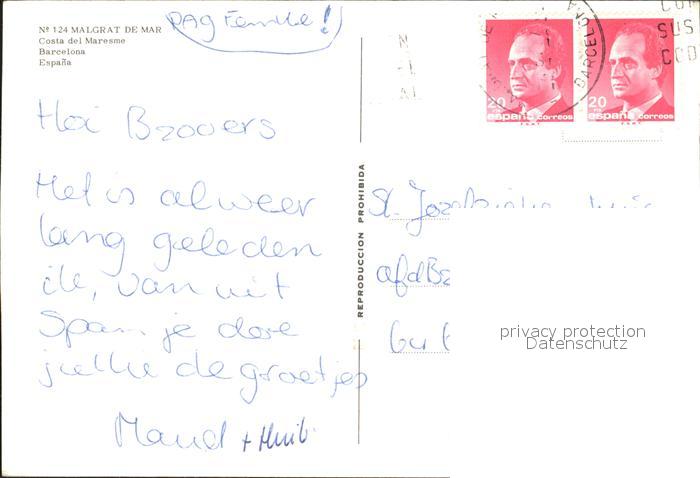 Nº 124 MALGRAT DE MAR
Costa del Maresme
Barcelona
España
DAG Familie!
Hoi Brooers
Het is alweer
lang geleden
ik, van uit
Spanje doe
jullie de groetjes
Maud + Huib.
REPRODUCCION PROHIBIDA
BARCELONA
20 PTA
españa correos
FNMT
20 PTA
españa correos
FNMT
St.
afd
privacy protection
Datenschutz